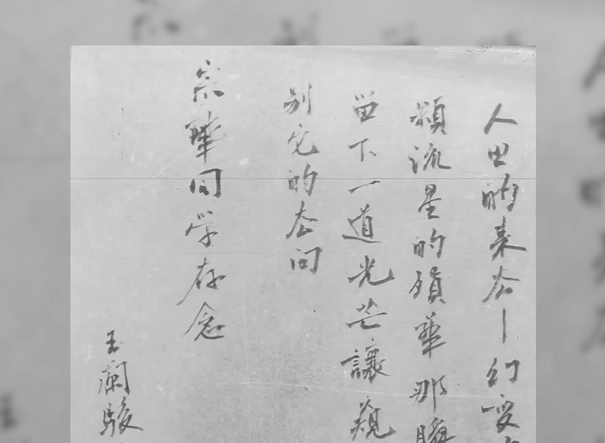 人世的来去—幻变
流星的殒华那瞬
留下一道光芒讓窺
别它的去向
宗骅同学存念
玉澜骏